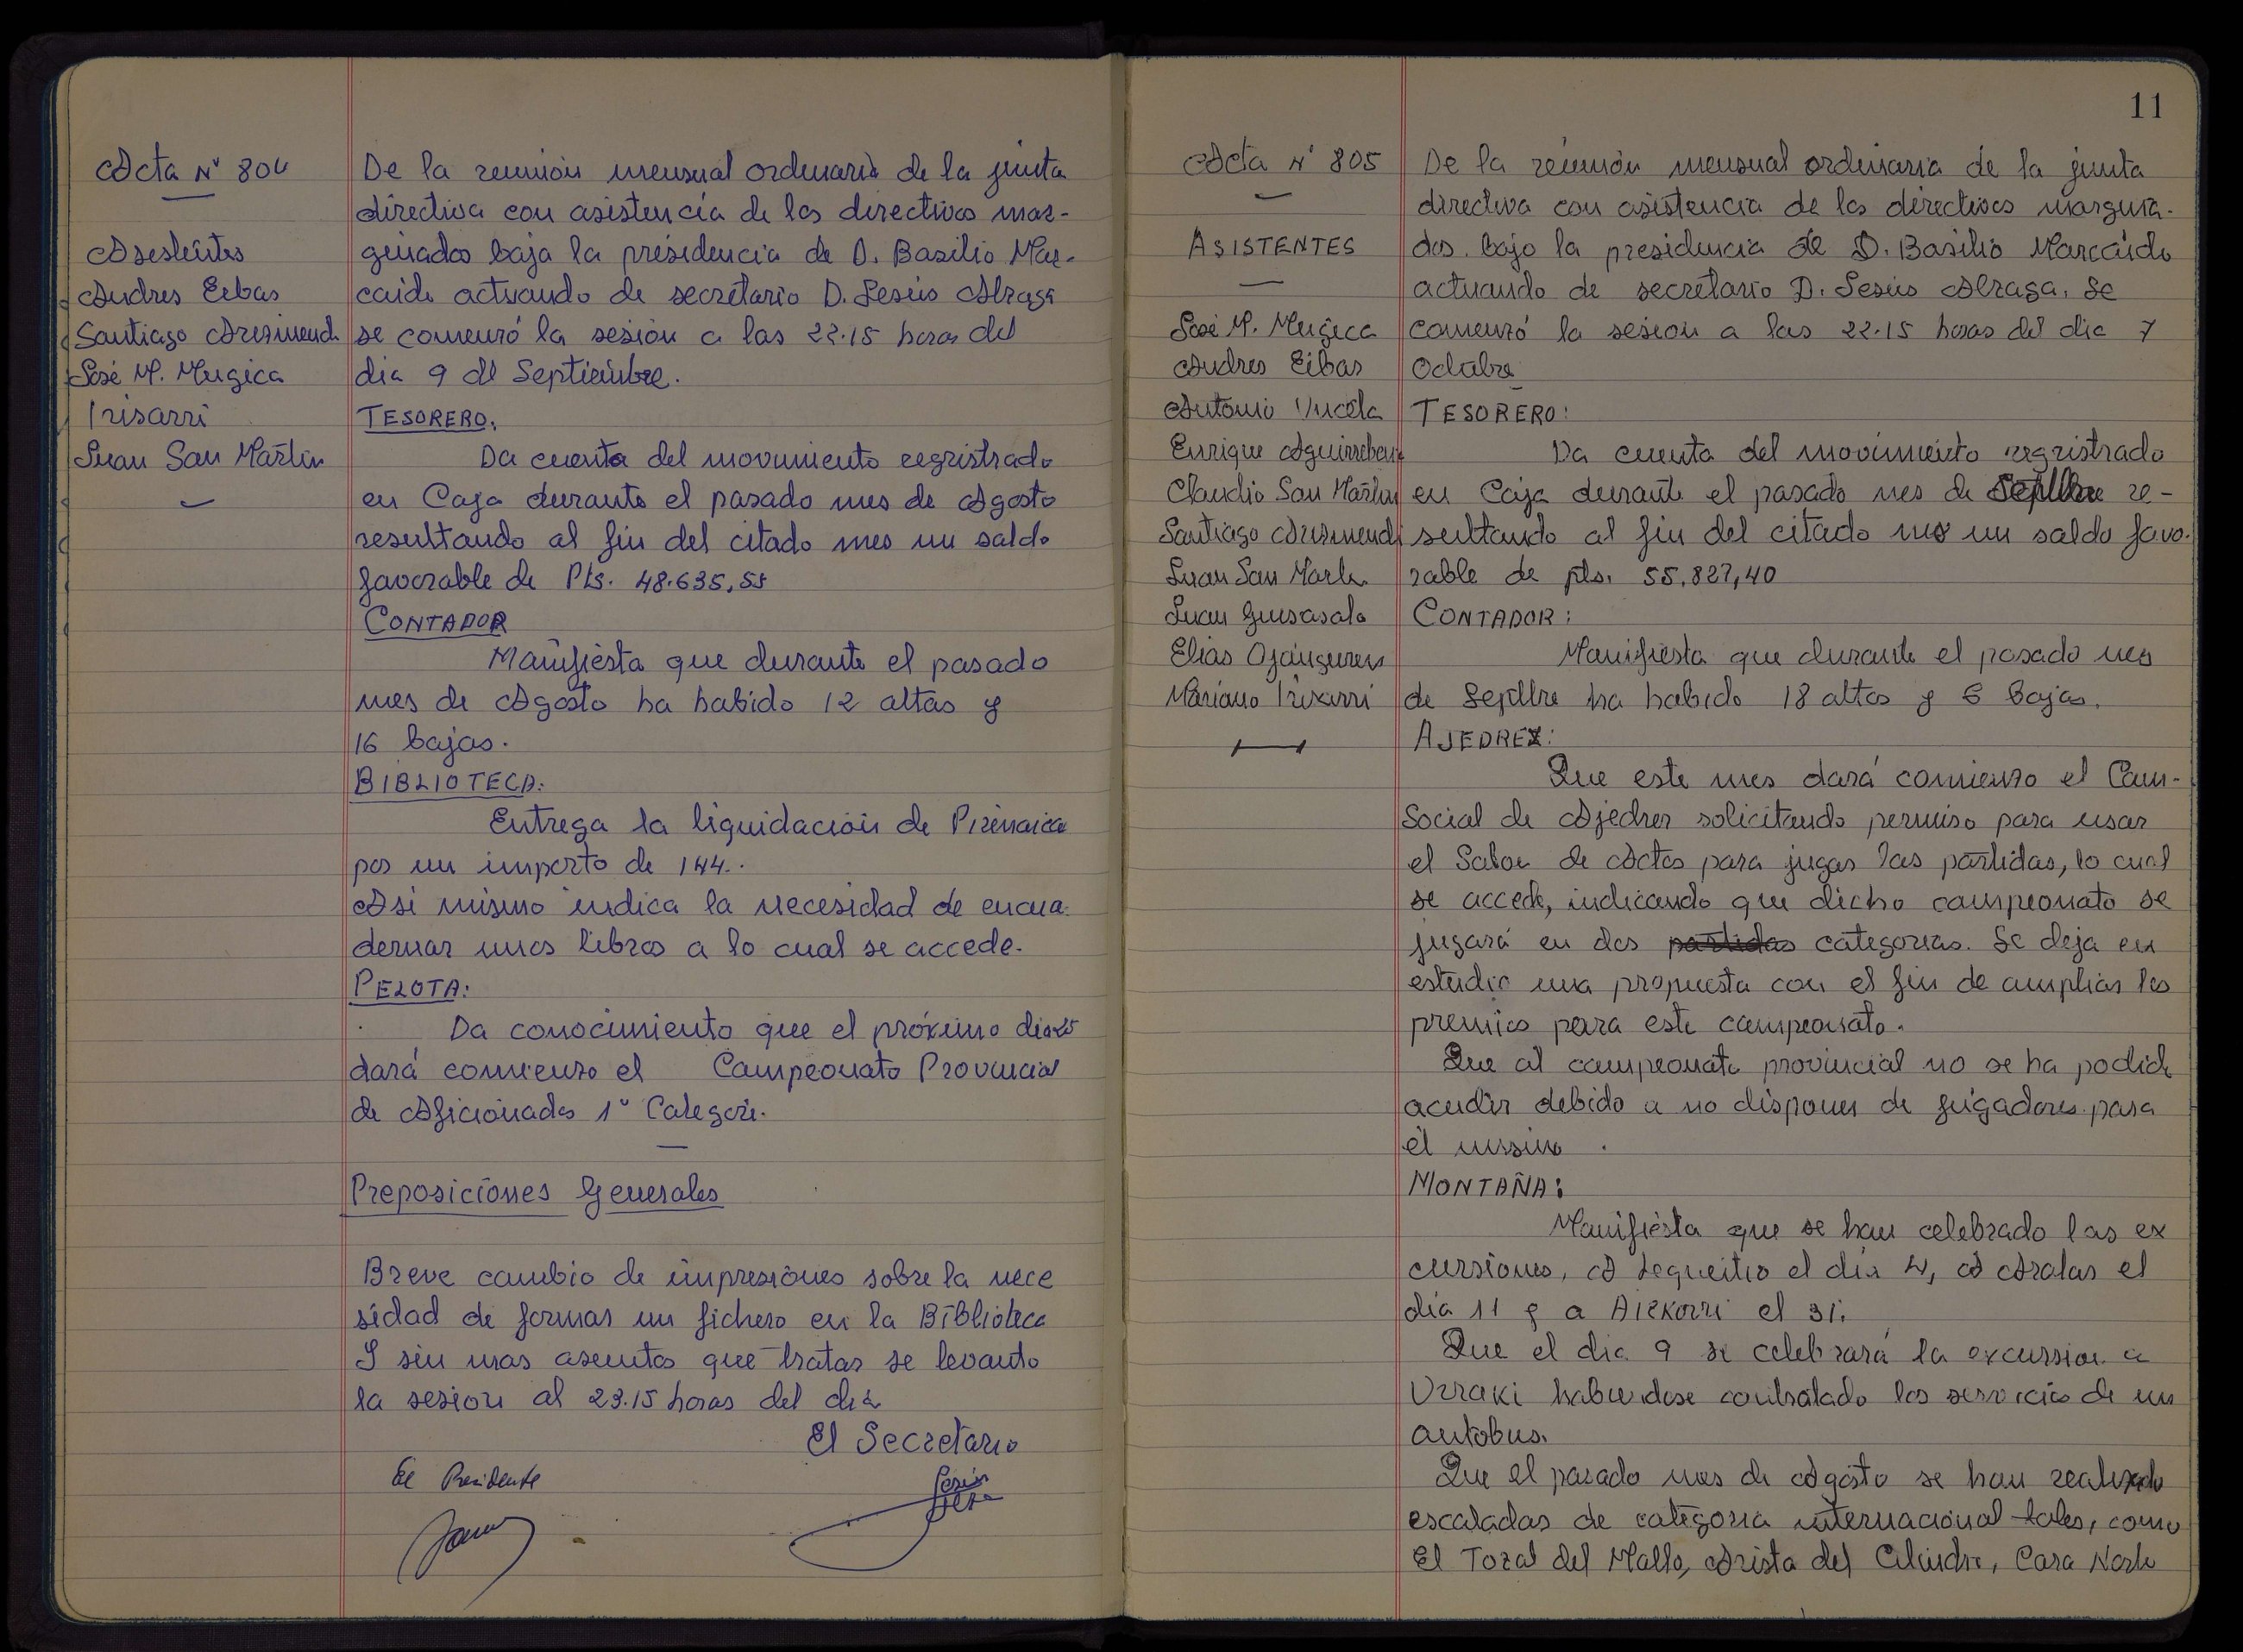 Acta Nº 804
Asistentes
Andres Eibas
Santiago Arizmendi
José M. Mugica
Irisarri
Juan San Martin
De la reunión mensual ordinaria de la junta
directiva con asistencia de los directivos mar-
ginados baja la presidencia de D. Basilio Mar-
caide actuando de secretario D. Jesús Alzaga
se comenzó la sesión a las 22.15 horas del
dia 9 de Septiembre.
TESORERO.
Da cuenta del movimiento registrado
en Caja durante el pasado mes de Agosto
resultando al fin del citado mes un saldo
favorable de Pts. 48.635,55
CONTADOR
Manifiesta que durante el pasado
mes de Agosto ha habido 12 altas y
16 bajas.
BIBLIOTECA:
Entrega la liquidación de Pirenaica
por un importe de 144.
Asi mismo indica la necesidad de encua-
dernar unos libros a lo cual se accede.
PELOTA:
Da conocimiento que el próximo dia 25
dará comienzo el Campeonato Provincial
de Aficionados 1ª Categori.
Preposiciones Generales
Breve cambio de impresiones sobre la nece
sidad de formar un fichero en la Biblioteca
Y sin mas asuntos que tratar se levanto
la sesion al 23.15 horas del dia
El Secretario
El Presidente
11
Acta Nº 805
ASISTENTES
José M. Mugica
Andres Eibas
Antonio
Enrique Aguirrebeni
Claudio San Martin
Santiago Arizmendi
Juan San Martin
Juan Guisasola
Elias Ojanguren
Mariano Irizarri
De la reunión mensual ordinaria de la junta
directiva con asistencia de los directivos margina-
dos. bajo la presidencia de D. Basilio Marcaide
actuando de secretario D. Jesús Alzaga. Se
comenzó la sesion a las 22.15 horas del dia 7
Octubre
TESORERO:
Da cuenta del movimiento registrado
en Caja durante el pasado mes de Septbre re-
sultando al fin del citado mes un saldo favo-
rable de pts. 55.827,40
CONTADOR:
Manifiesta que durante el pasado mes
de Septbre ha habido 18 altas y 6 bajas.
AJEDREZ:
Que este mes dará comienzo el Cam-
Social de Ajedrez solicitando permiso para usar
el Salon de Actos para jugar las partidas, lo cual
se accede, indicando que dicho campeonato se
jugará en dos partidas categorias. Se deja en
estudio una propuesta con el fin de ampliar los
premios para este campeonato.
Que al campeonato provincial no se ha podido
acudir debido a no disponer de jugadores para
el mismo.
MONTAÑA:
Manifiesta que se han celebrado las ex
cursiones, A Lequeitio el dia 4, A Aralar el
dia 11 y a Aizkorri el 31.
Que el dia 9 se celebrará la excursion a
Urraki habiendose contratado los servicios de un
autobus.
Que el pasado mes de Agosto se han realizado
escaladas de categoria internacional tales, como
El Tozal del Mallo, Arista del Cilindro, Cara Norte